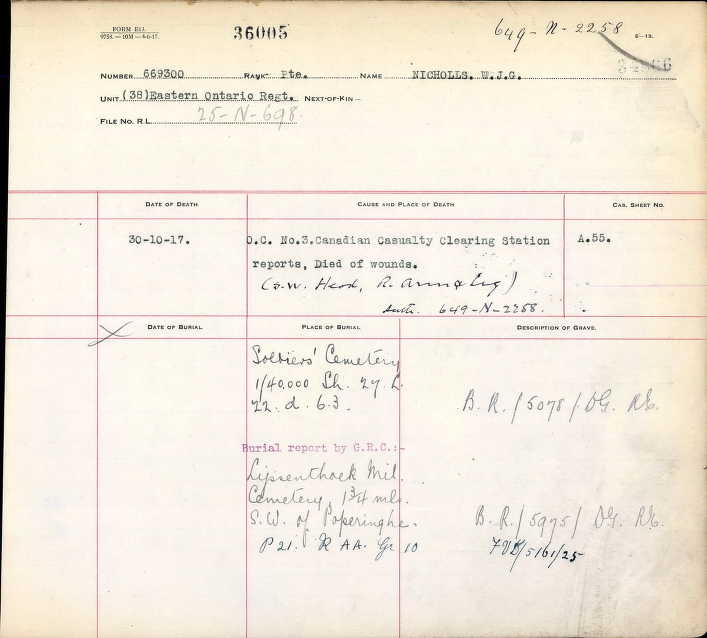 FORM R15.
975S.—10M—6-6-17.
36005
649-N-2258
NUMBER 669300 RANK Pte. NAME NICHOLLS. W.J.G.
UNIT (38)Eastern Ontario Regt. NEXT-OF-KIN—
FILE No. R.L. 25-N-698.
DATE OF DEATH CAUSE AND PLACE OF DEATH CAS. SHEET No.
30-10-17. O.C. No.3.Canadian Casualty Clearing Station A.55.
reports, Died of wounds.
(S.W. Head, R. Arm & Leg)
Auth. 649-N-2258.
DATE OF BURIAL PLACE OF BURIAL DESCRIPTION OF GRAVE.
Soldiers' Cemetery
1/40,000 Sh. 27. L.
22. d. 6.3. B.R./5078/DG. RE.
Burial report by G.R.C.:-
Lijssenthoek Mil.
Cemetery, 1 3/4 mls.
S.W. of Poperinghe. B.R./5975/DG. RE.
P 21. R AA. Gr 10 /5161/25